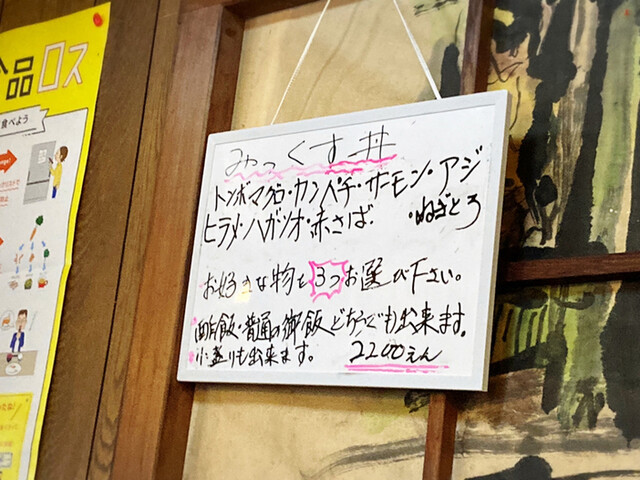 食品ロス
食べよう
みっくす丼
トンボマグロ・カンパチ・サーモン・アジ
ヒラメ・ハガツオ・赤さば・ねぎとろ
お好きな物を3つお選び下さい。
酢飯・普通の御飯どちらでも出来ます。
小盛りも出来ます。
2200えん